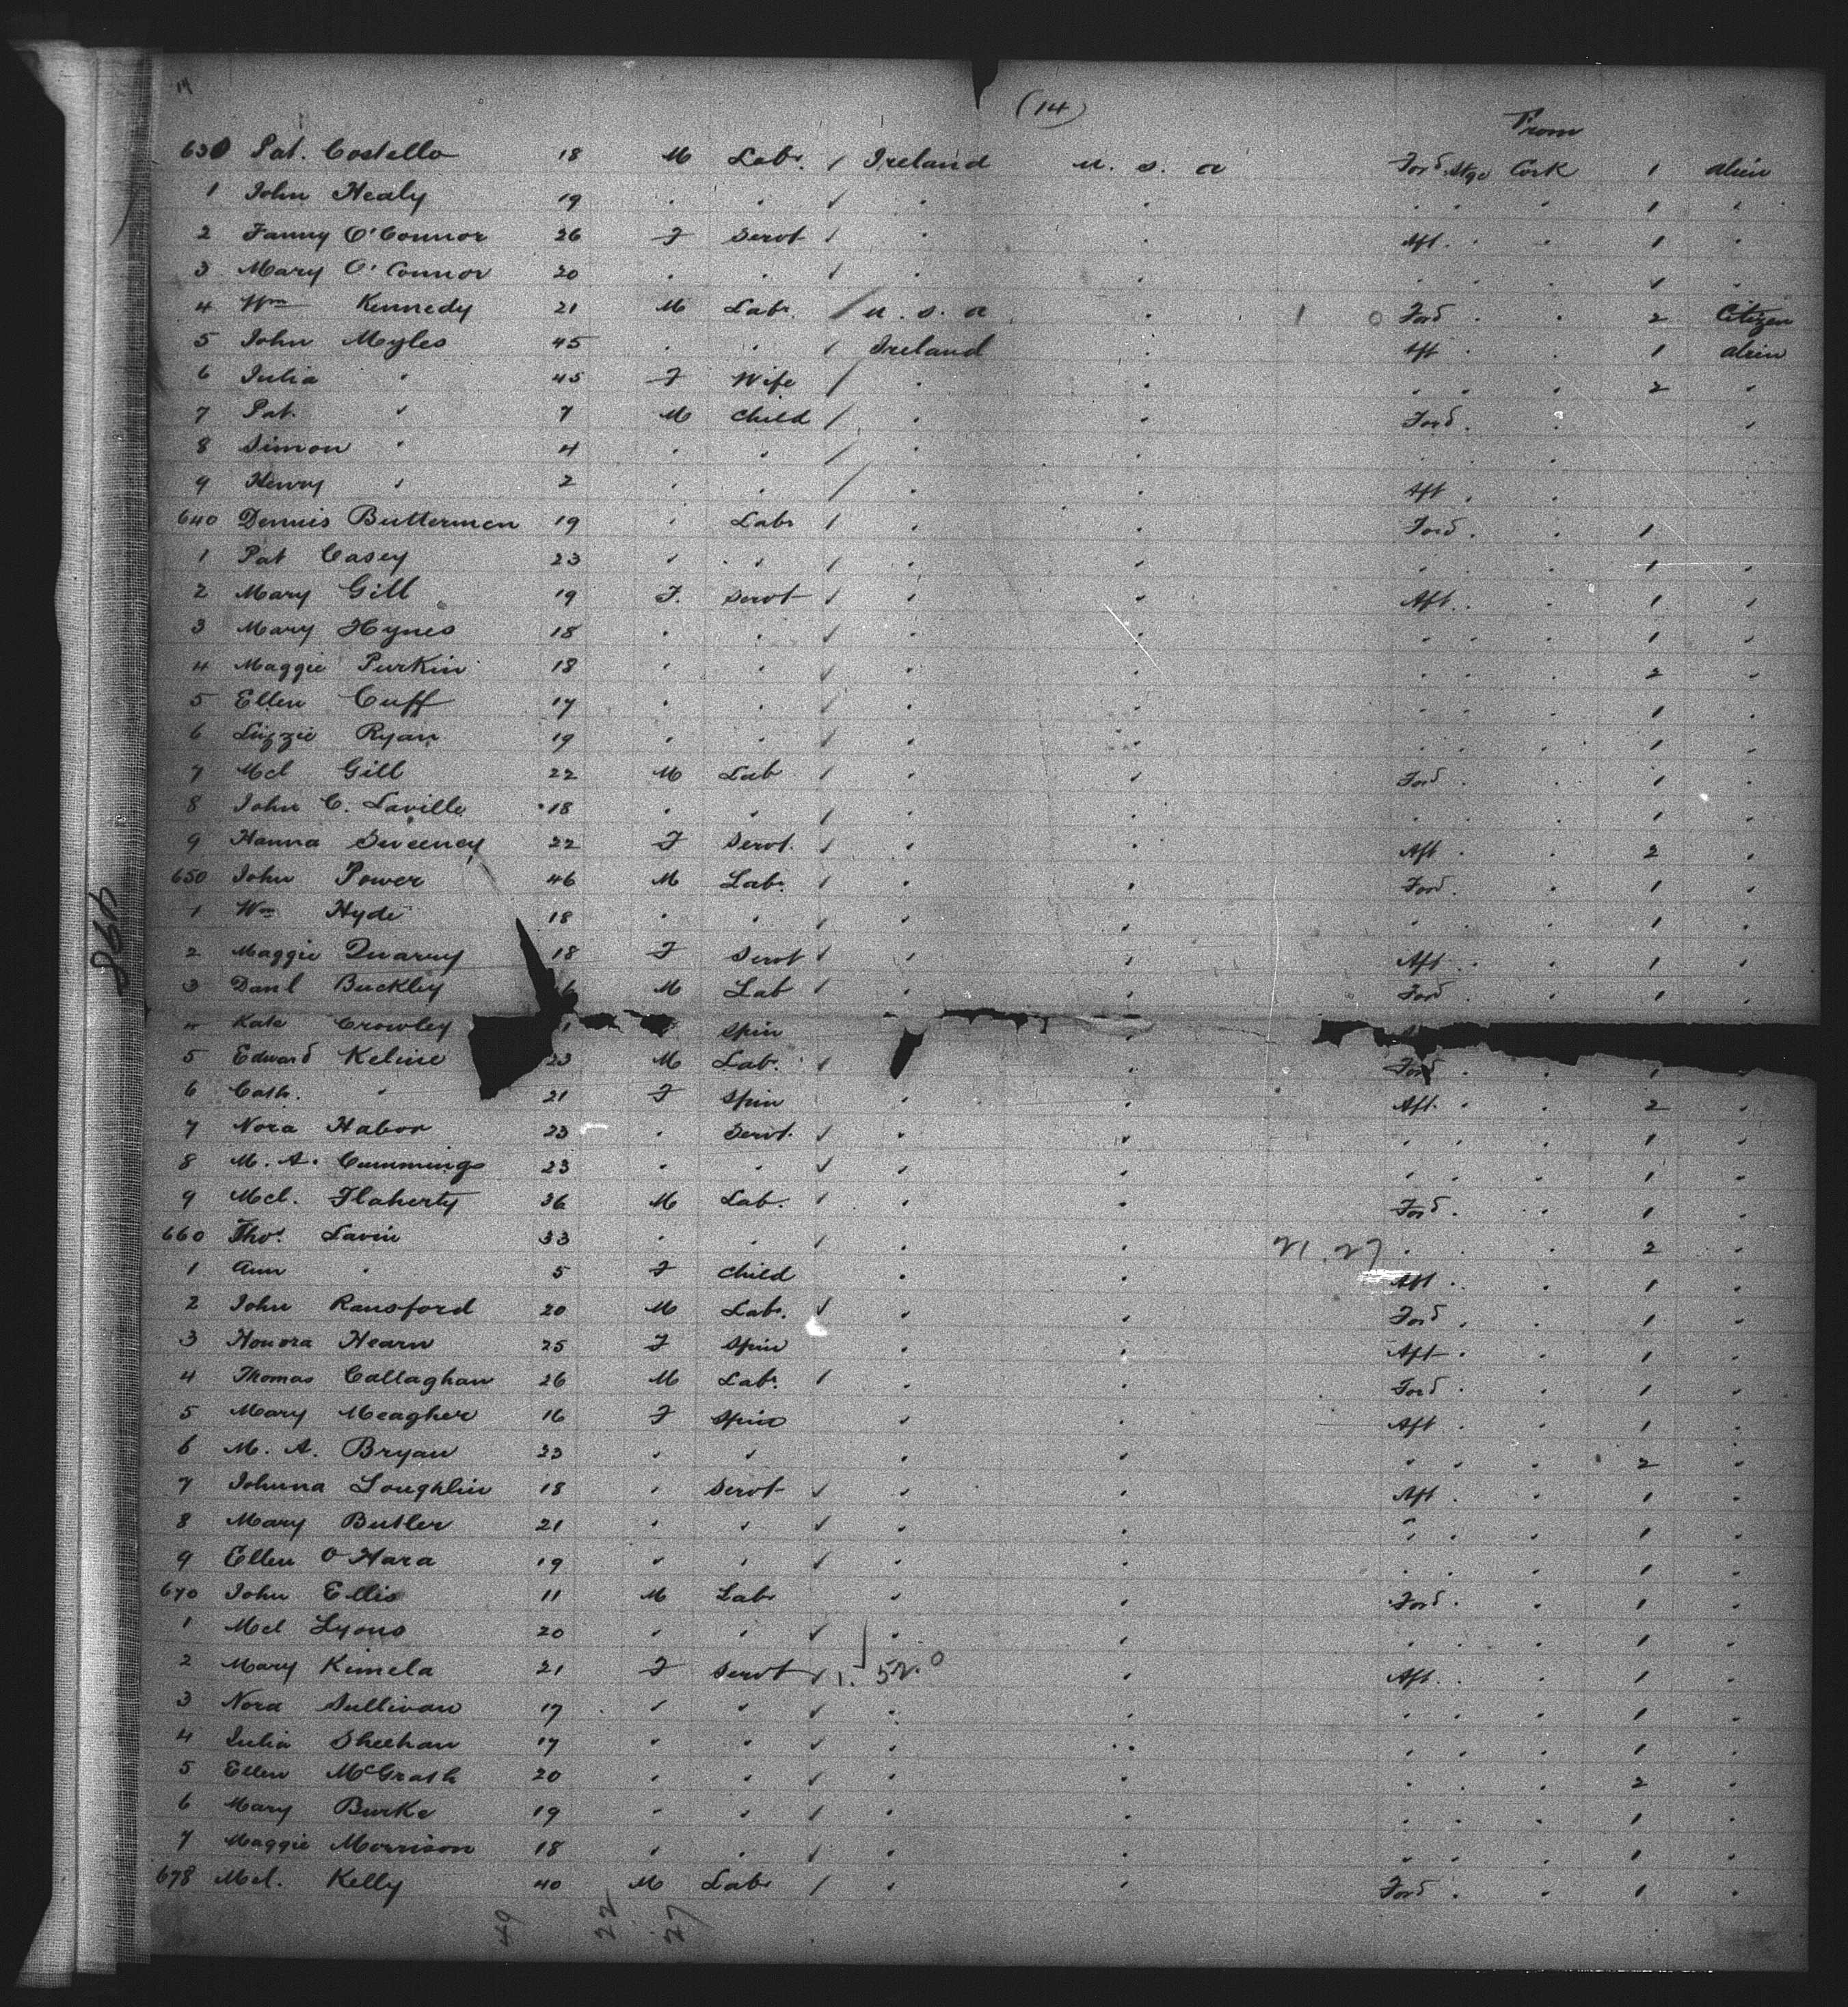 14
(14)
From
630 Pat. Costello 18 M Labr. / Ireland U. S. A Ford. Stge Cork 1 Alien
1 John Healy 19 . . / . . . . . 1 .
2 Fanny O'Connor 26 F Servt / . . Aft. . . 1 .
3 Mary O'Connor 20 . . / . . . . . 1 .
4 Wm Kennedy 21 M Labr. / U. S. A . 1 0 Ford . . 2 Citizen
5 John Myles 45 . . / Ireland . Aft . . 1 Alien
6 Julia " 45 F Wife / . . . . . 2 .
7 Pat. " 7 M Child / . . Ford. . .
8 Simon " 4 . . / . . . . .
9 Henry " 2 . . / . . Aft . .
640 Dennis Buttermen 19 . Labr / . . Ford. . 1
1 Pat Casey 23 . . / . . . . . 1 .
2 Mary Gill 19 F. Servt / . . Aft. . . 1 .
3 Mary Hynes 18 . . / . . . . . 1 .
4 Maggie Purkin 18 . . / . . . . . 2 .
5 Ellen Cuff 17 . . / . . . . . 1 .
6 Lizzie Ryan 19 . . / . . . . . 1 .
7 Mcl Gill 22 M Lab / . . Ford . . 1 .
8 John C. Laville 18 . . / . . . . . 1 .
9 Hanna Sweeney 22 F Servt. / . . Aft . . 2 .
650 John Power 46 M Labr. / . . Ford. . 1 .
1 Wm Hyde 18 . . / . . . . . 1 .
2 Maggie Quarry 18 F Servt / . . Aft . . 1 .
3 Danl Buckley 6 M Lab / . . Ford . . 1 .
4 Kate Crowley Spin
5 Edward Keline 23 M Labr. / . Ford . . 1 .
6 Cath. " 21 F Spin . . Aft. . . 2 .
7 Nora Habor 23 . Servt. / . . . . . 1 .
8 M. A. Cummings 23 . . / . . . . . 1 .
9 Mcl. Flaherty 36 M Lab. / . . Ford . . 1 .
660 Thos. Lavin 33 . . / . . 21. 27 . . . 2 .
1 Ann " 5 F Child . . Aft . . 1 .
2 John Ransford 20 M Labr. / . . Ford . . 1 .
3 Honora Hearn 25 F Spin . . Aft . . 1 .
4 Thomas Callaghan 26 M Labr. / . . Ford . . 1 .
5 Mary Meagher 16 F Spin . . Aft . . 1 .
6 M. A. Bryan 23 . . . . . . . 2 .
7 Johnna Loughlin 18 . Servt / . . Aft . . 1 .
8 Mary Butler 21 . . / . . . . . 1 .
9 Ellen O'Hara 19 . . / . . . . . 1 .
670 John Ellis 11 M Labr . . Ford . . 1 .
1 Mcl Lyons 20 . . / . . . . . 1 .
2 Mary Kimela 21 F Servt / 1. 52.0 . Aft. . . 1 .
3 Nora Sullivan 17 . . / . . . . . 1 .
4 Julia Sheehan 17 . . / . . . . . 1 .
5 Ellen McGrath 20 . . / . . . . . 2 .
6 Mary Burke 19 . . / . . . . . 1 .
7 Maggie Morrison 18 . . / . . . . . 1 .
678 Mcl. Kelly 40 M Labr / . . Ford . . 1 .
49 22 27